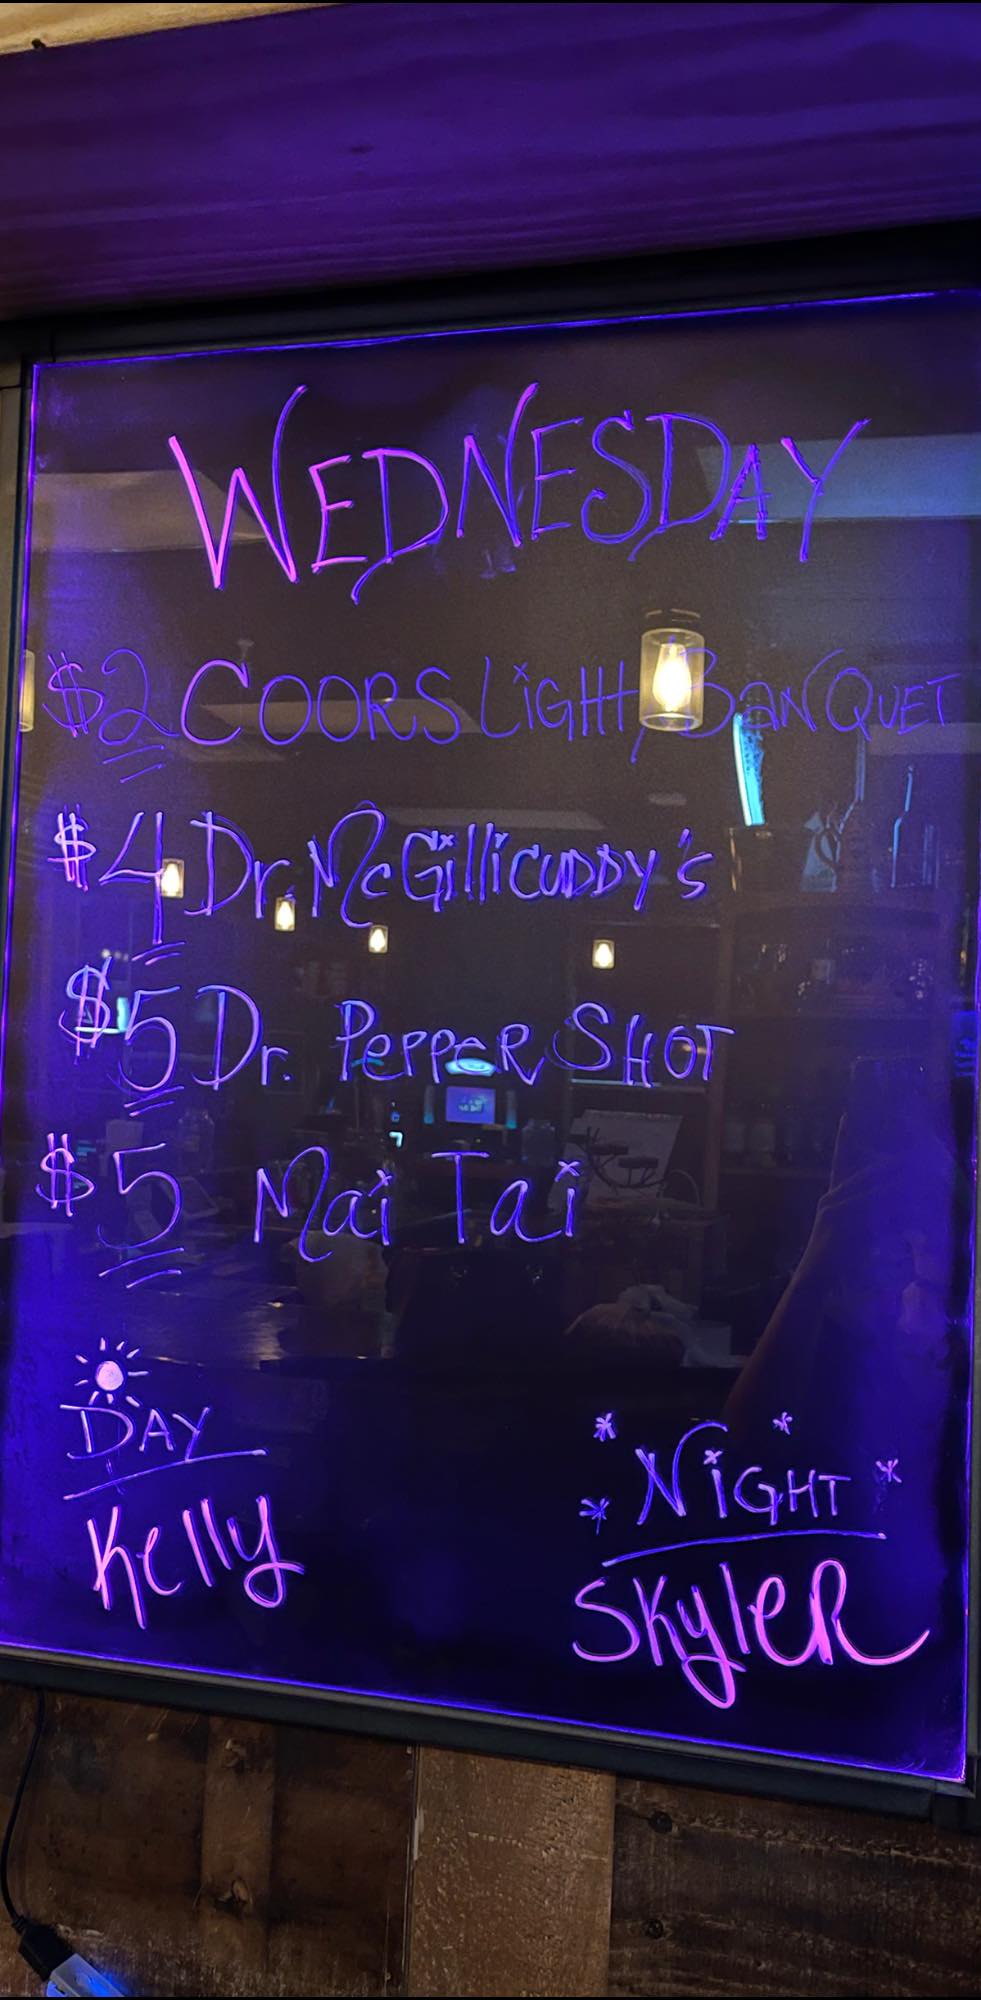 WEDNESDAY
$2 COORS LIGHT, BANQUET
$4 Dr. McGillicuddy's
$5 Dr. Pepper Shot
$5 Mai Tai
DAY
Kelly
NIGHT
Skyler